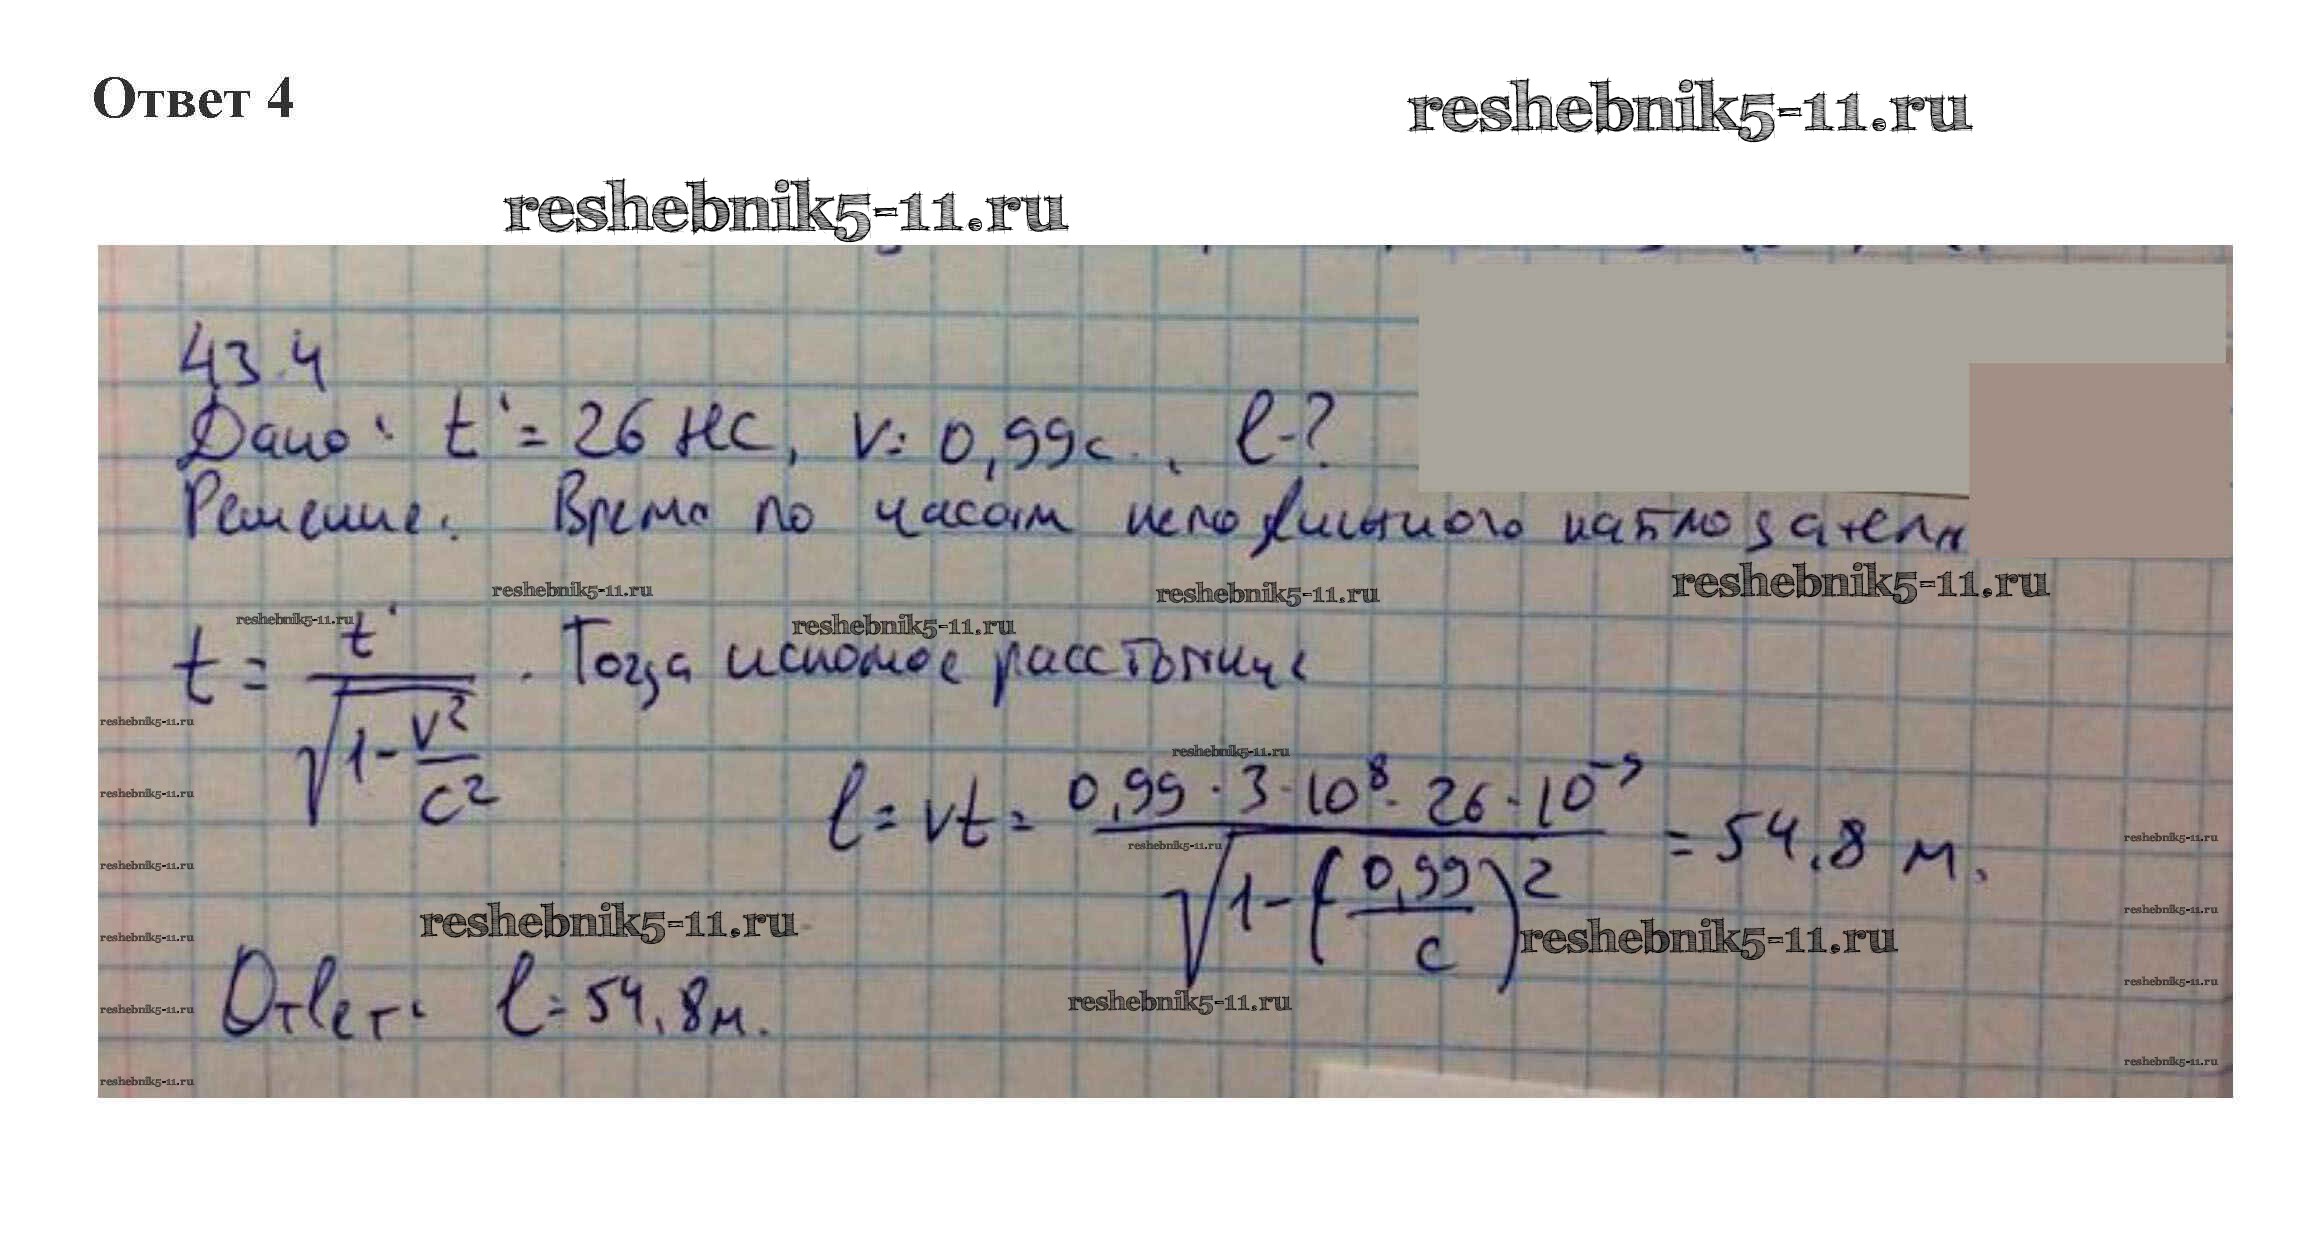 Ответ 4
reshebnik5-11.ru
reshebnik5-11.ru
43.4
Дано: t' = 26 нс, v = 0,99c., l-?
Решение. Время по часам неподвижного наблюдателя
reshebnik5-11.ru
reshebnik5-11.ru
reshebnik5-11.ru
reshebnik5-11.ru
reshebnik5-11.ru
t = t' / √(1 - v²/c²) . Тогда искомое расстояние
reshebnik5-11.ru
reshebnik5-11.ru
l = vt = 0,99 · 3 · 10⁸ · 26 · 10⁻⁹ / √(1 - (0,99/c)²) = 54,8 м.
reshebnik5-11.ru
reshebnik5-11.ru
reshebnik5-11.ru
reshebnik5-11.ru
reshebnik5-11.ru
reshebnik5-11.ru
reshebnik5-11.ru
reshebnik5-11.ru
reshebnik5-11.ru
Ответ: l = 54,8 м.
reshebnik5-11.ru
reshebnik5-11.ru
reshebnik5-11.ru
reshebnik5-11.ru
reshebnik5-11.ru